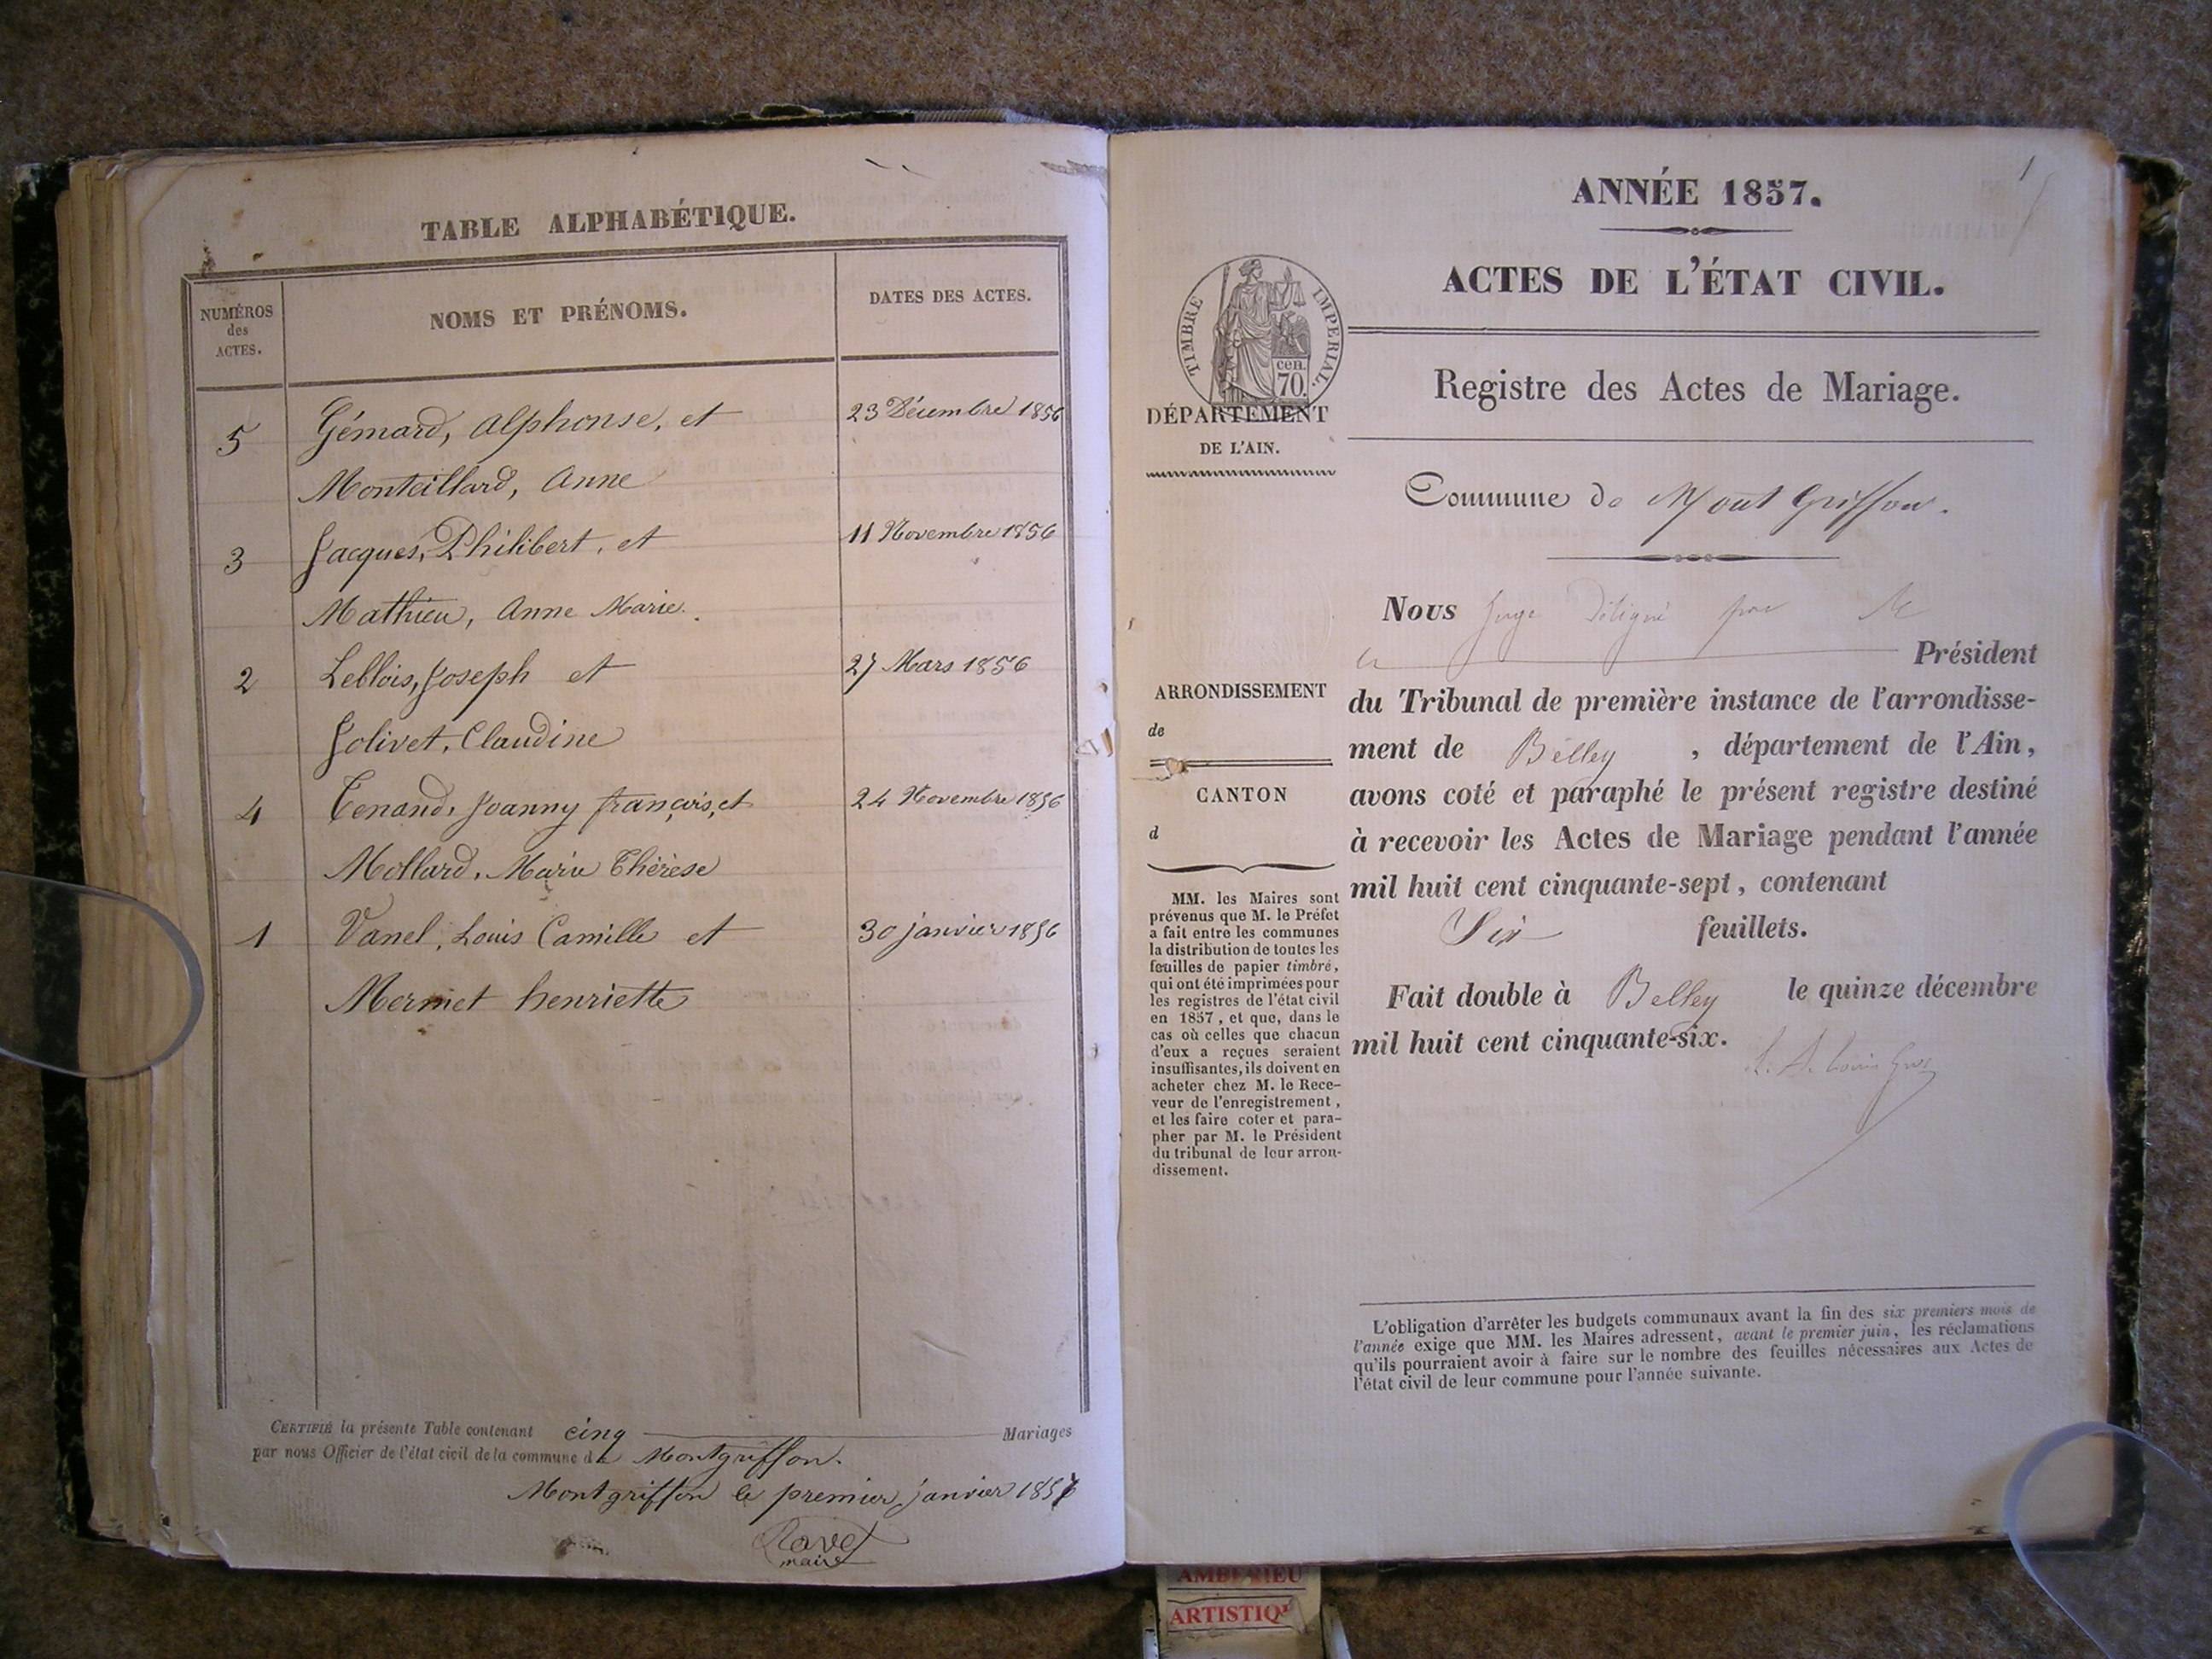 TABLE ALPHABÉTIQUE.
NUMÉROS
des
ACTES.
NOMS ET PRÉNOMS.
DATES DES ACTES.
5 Gémard, Alphonse, et 23 Décembre 1856
Monteillard, Anne
3 Jacques, Philibert, et 11 Novembre 1856
Mathieu, Anne Marie.
2 Leblois, Joseph et 27 Mars 1856
Jolivet, Claudine
4 Tenand, Joanny françois, et 24 Novembre 1856
Mollard, Marie Thérèse
1 Vanel, Louis Camille et 30 janvier 1856
Mermet henriette
CERTIFIÉ la présente Table contenant cinq Mariages
par nous Officier de l'état civil de la commune de Montgriffon.
Montgriffon le premier janvier 1857
Ravet
maire
1
ANNÉE 1857.
ACTES DE L'ÉTAT CIVIL.
TIMBRE IMPERIAL.
cen.
70.
DÉPARTEMENT
DE L'AIN.
Registre des Actes de Mariage.
Commune de Mont Griffon.
Nous Juge délégué par M
le Président
du Tribunal de première instance de l'arrondisse-
ment de Belley, département de l'Ain,
avons coté et paraphé le présent registre destiné
à recevoir les Actes de Mariage pendant l'année
mil huit cent cinquante-sept, contenant
Six feuillets.
Fait double à Belley le quinze décembre
mil huit cent cinquante-six.
ARRONDISSEMENT
de
CANTON
d
MM. les Maires sont
prévenus que M. le Préfet
a fait entre les communes
la distribution de toutes les
feuilles de papier timbré,
qui ont été imprimées pour
les registres de l'état civil
en 1857, et que, dans le
cas où celles que chacun
d'eux a reçues seraient
insuffisantes, ils doivent en
acheter chez M. le Rece-
veur de l'enregistrement,
et les faire coter et para-
pher par M. le Président
du tribunal de leur arron-
dissement.
L'obligation d'arrêter les budgets communaux avant la fin des six premiers mois de
l'année exige que MM. les Maires adressent, avant le premier juin, les réclamations
qu'ils pourraient avoir à faire sur le nombre des feuilles nécessaires aux Actes de
l'état civil de leur commune pour l'année suivante.
AMBERIEU
ARTISTIQU